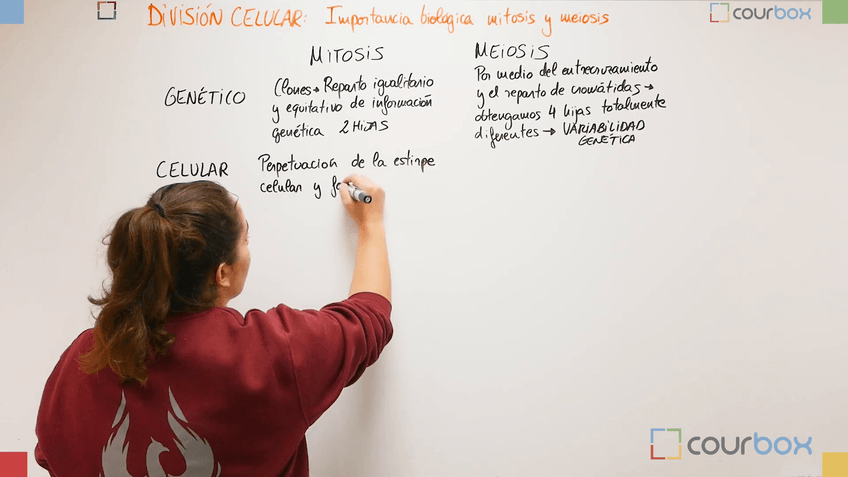 DIVISIÓN CELULAR: Importancia biológica mitosis y meiosis
courbox
MITOSIS
MEIOSIS
GENÉTICO
Clones → Reparto igualitario
y equitativo de información
genética 2 HIJAS
Por medio del entrecruzamiento
y el reparto de cromátidas →
obtengamos 4 hijas totalmente
diferentes → VARIABILIDAD
GENÉTICA
CELULAR
Perpetuación de la estirpe
celular y
courbox